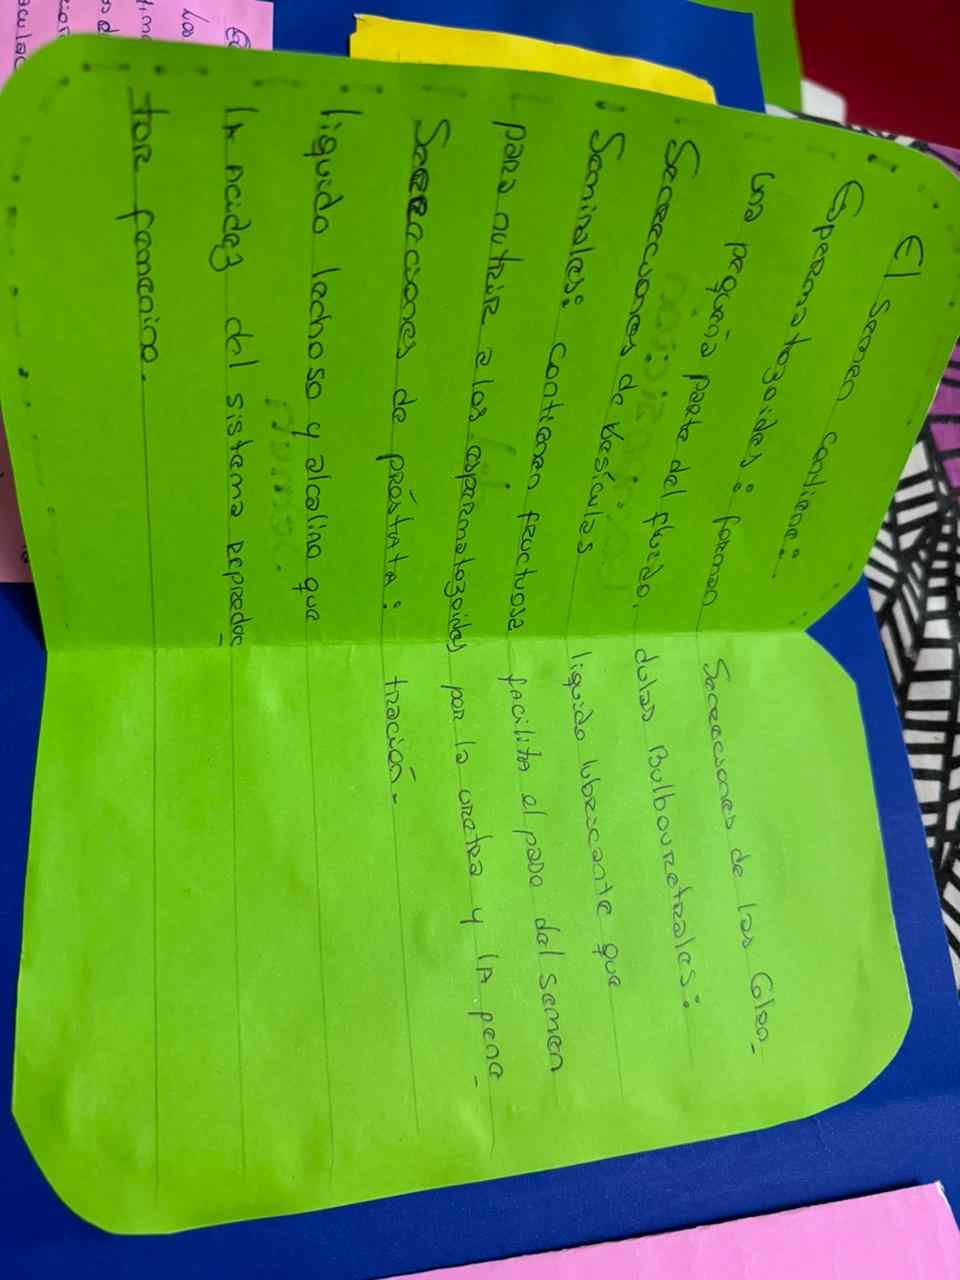 El semen contiene:
Espermatozoides: forman
una pequeña parte del fluido.
Secrecciones de Vesículas
Seminales: contienen fructuosa
para nutrir a los espermatozoides
Secrecciones de próstata:
liquido lechoso y alcalino que
la acidez del sistema reproduc-
tor femenino.
Secrecciones de las Glan-
dulas Bulbouretrales:
liquido lubricante que
facilita el paso del semen
por la uretra y la pene-
tración.